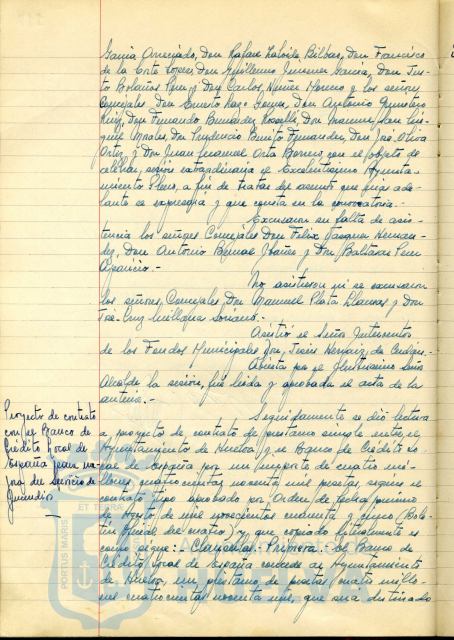 García Arreciado, Don Rafael Bilbao, Don Francisco
de la Corte López, Don Guillermo Jimenez García, Don Jus-
to Bolaños Pérez y Don Carlos Núñez Moreno y los señores
Concejales Don Ernesto Lazo Gomez, Don Antonio Quintero
Ruiz, Don Fernando Bermudez Rosello, Don Manuel San Mi-
guel Morales, Don Prudencio Benito Fernandez, Don José Oliva
Ortiz y Don Juan Manuel Orta con el objeto de
celebrar sesión extraordinaria el Excelentísimo Ayunta-
miento Pleno, a fin de tratar del asunto que mas ade-
lante se expresará y que consta en la convocatoria.-
Excusaron su falta de asis-
tencia los señores Concejales Don Felix Vazquez Hernan-
dez, Don Antonio Bernal Ibañez y Don Baltasar Perez
Aparicio.-
No asistieron ni se excusaron
los señores Concejales Don Manuel Plata Llamas y Don
José Cruz Soriano.-
Asistió el Señor Interventor
de los Fondos Municipales Don Jesús de
Abierta por el Ilustrísimo Señor
Alcalde la sesión, fué leida y aprobada el acta de la
anterior.-
Proyecto de contrato
con el Banco de
Crédito Local de
España para me-
jora del Servicio de
Incendios
Seguidamente se dió lectura
a proyecto de contrato de prestamo simple entre el
Ayuntamiento de Huelva y el Banco de Crédito Lo-
cal de España por un importe de cuatro mi-
llones cuatrocientas noventa mil pesetas, segun el
contrato tipo aprobado por Orden de fecha primero
de Agosto de mil novecientos cuarenta y cinco (Bole-
tin Oficial del cuatro) y que copiado literalmente es
como sigue: "Clausulas: Primera.- El Banco de
Crédito Local de España concede al Ayuntamiento
de Huelva, un préstamo de pesetas cuatro millo-
nes cuatrocientas noventa mil, que será destinado
PORTUS MARIS
ET TERRAE